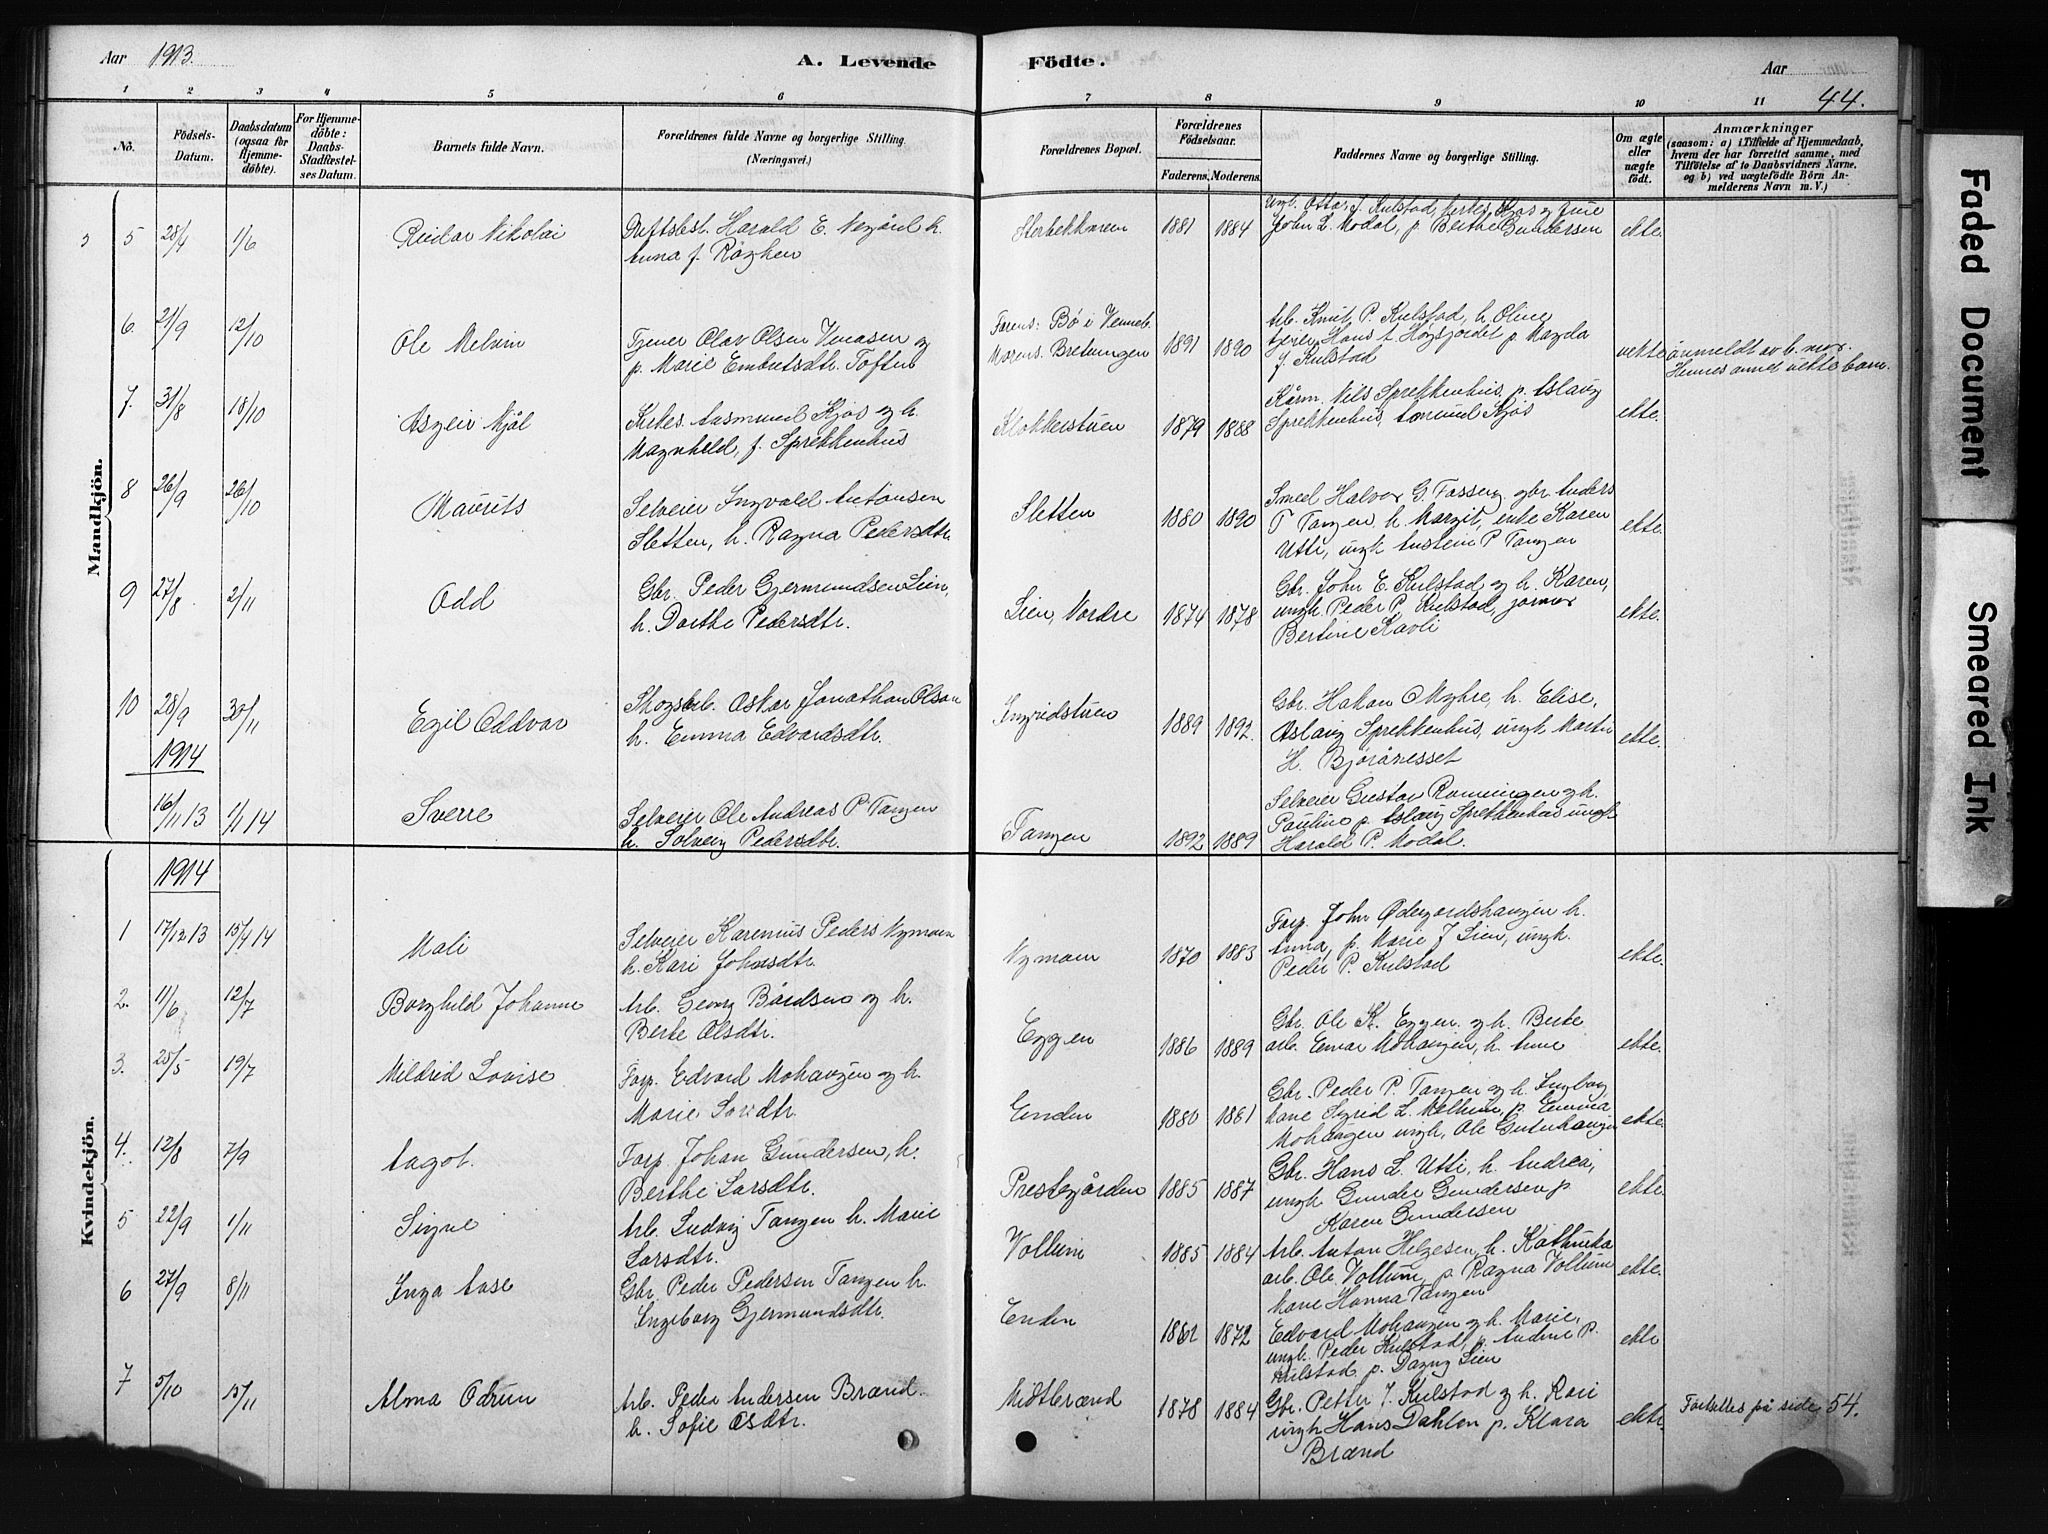 Aar 1913.
A. Levende
Födte.
Aar
44.
1 2 3 4 5 6 7 8 9 10 11
No.
Födsels-
Datum.
Daabsdatum
(ogsaa for
Hjemme-
döbte).
For Hjemme-
döbte:
Daabs-
Stadfæstel-
ses Datum.
Barnets fulde Navn.
Forældrenes fulde Navne og borgerlige Stilling.
(Næringsvei.)
Forældrenes Bopæl.
Forældrenes
Födselsaar.
Faderens. Moderens.
Faddernes Navne og borgerlige Stilling.
Om ægte
eller
uægte
födt.
Anmærkninger
(saasom: a) i Tilfælde af Hjemmedaab,
hvem der har forrettet samme, med
Tilföielse af to Daabsvidners Navne,
og b) ved uægtefödte Börn An-
melderens Navn m. V.)
Mandkjön.
5 28/4 1/6 Reidar Nikolai
Harald E.
Anna f.
1881 1884
John L. Modal, p. Berthe Gundersen
ekte.
6. 21/9 12/10 Ole Melvin
Tjener Olav Olsen
p. Marie Embretsdtr. Toften
Farens: Bø i
Morens: Bretungen
1891 1890
Arb. Knut P. Kulstad, h. Oline
p. Magda
f. Kulstad
uekte
anmeldt av b. mor.
Hennes annet uekte barn.
7. 31/8 18/10 Asgeir Njål
Kirkes. Aasmund Kjos og h.
Magnhild, f. Sprekkenhus
Klokkerstuen
1879 1888
Nils Sprekkenhus, p. Aslaug
Sprekkenhus, Kjos
ekte.
8 26/9 26/10 Maurits
Selveier Ingvald Antonsen
Sletten, h. Ragna Pedersdtr.
Sletten
1880 1890
Smed Halvor G. gbr. Anders
T. Tangen h. Margit, enke Karen
Utti, ungk. Austein P. Tangen
ekte.
9 27/8 2/11 Odd
Gbr. Peder Gjermundsen Lien,
h. Dorthe Pedersdtr.
Lien, Nordre
1874 1878
Gbr. John E. Kulstad og h. Karen,
ungk. Peder P. Kulstad, jomfr
Bertine
ekte.
10 28/9 30/11 Egil Oddvar
Skogsarb. Oskar Jonathan Olsen
h. Emma Edvardsdtr.
Ingridstuen
1889 1892.
Gbr. Hakon O Myhre, h. Elise,
Aslaug Sprekkenhus, ungk. Martin
H. Bjøråneset
ekte.
1914
16/11 13 1/1 14 Sverre
Selveier Ole Andreas P. Tangen
h. Solveig Pedersdtr.
Tangen
1892 1889
Selveier Gustav Rønningen og h.
Pauline p. Aslaug Sprekkenhus ungk.
Harald P. Modal.
Kvindekjön.
1914
1 17/12 13 15/4 14 Mali
Selveier Karenius Peders Nymoen
h. Kari Johnsdtr.
Nymoen
1870 1883
Forp. John Ødegårdshaugen h.
Anna, p. Marie J Lien, ungk.
Peder P. Kulstad
ekte.
2. 11/6 12/7 Borghild Johanne
Arb. Georg Bårdsen og h.
Berte Olsdtr.
Eggen
1886 1889
Gbr. Ole K. Eggen og h. Berte
arb. Einar Mohaugen, h. Anne
ekte.
3. 25/5 19/7 Mildrid Lovise
Forp. Edvard Mohaugen og h.
Marie Larsdtr.
Enden
1880 1881
Gbr. Peder P. Tangen og h. Ingborg
kone Sigrid L. p. Emma
Mohaugen ungk. Ole
ekte.
4. 12/8 7/9 Aagot.
Forp. Johan Gundersen, h.
Berthe Larsdtr.
Prestegården
1885 1887
Gbr. Hans L. Utti, h. Andrea,
ungk. Gunder Gundersen p.
Karen Gundersen
ekte.
5 22/9 1/11 Signe
Arb. Ludvig Tangen h. Marie
Larsdtr.
Vollum
1885 1884
Arb. Anton Helgesen, h. Kathinka
arb. Ole Vollum, p. Ragna Vollum
Marie Hanna Tangen
ekte.
6 27/9 8/11 Inga Aase
Gbr. Peder Pedersen Tangen h.
Ingeborg Gjermundsdtr.
Enden
1861 1872
Edvard Mohaugen og h. Marie,
ungk. Peder Kulstad, p. Andrine P.
Kulstad p. Dagny Lien
ekte
7 5/10 15/11 Alma Odrun
Arb. Peder Andersen Brænd.
h. Sofie Olsdtr.
Midtbrænd
1878 1884
Gbr. Petter J. Kulstad og h. Kari
ungk Hans Dahlen p. Klara
Brænd
ekte.
Fortsettes på side 54.
Faded Document
Smeared Ink